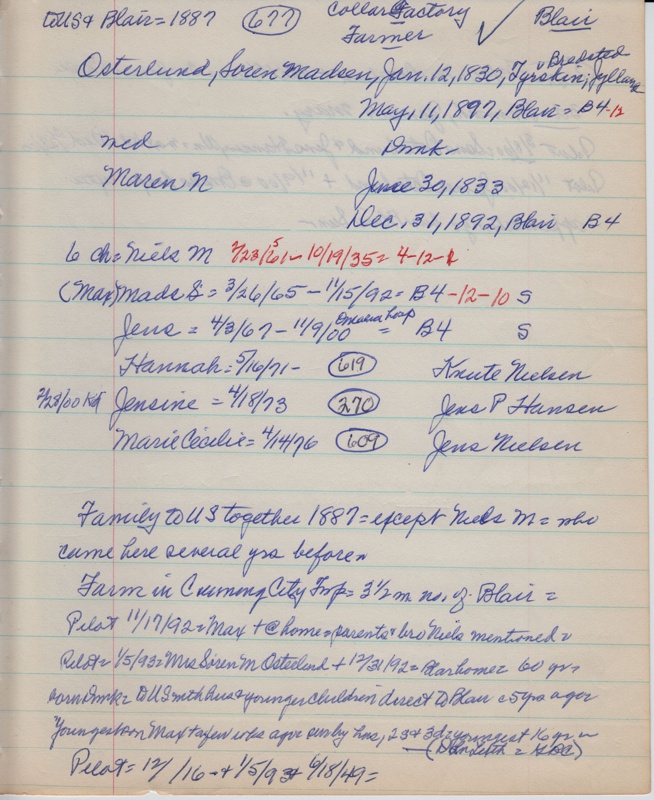 to US & Blair = 1887 677 Collar Factory Blair
Farmer
Osterlund, Soren Madsen, Jan. 12, 1830, Tyrskin, Bredsted, Jylland
May, 11, 1897, Blair = B4-12
med Dmk-
Maren N June 30, 1833
Dec. 31, 1892, Blair B4
6 ch = Niels M 2/23/61 - 10/19/35 = 4-12-1
(Max) Mads S = 3/26/65 - 11/15/92 = B4-12-10 S
Jens = 4/3/67 - 11/9/00 Omaha Hosp = B4 S
Hannah = 5/16/71 - 619 Knute Nielsen
2/28/00 Jensine = 4/18/73 270 Jens P Hansen
Marie Cecilie = 4/14/76 609 Jens Nielsen
Family to US together 1887 = except Niels M = who
came here several yrs before
Farm in Cuming City Twp = 3 1/2 m no. of Blair =
Pilot 11/17/92 = Max + @ home = parents & bro Niels mentioned =
Pilot = 1/5/93 = Mrs Soren M Osterlund + 12/31/92 = Blair home = 60 yrs
born Dmk = to US with hus & younger children direct to Blair = 5 yrs ago =
Youngest son Max + a few wks ago = surv by hus, 2 s & 3 d = youngest 16 yrs
(Dan Luth =
Pilot = 12/ /16 - + 1/5/93 + 6/18/49 =